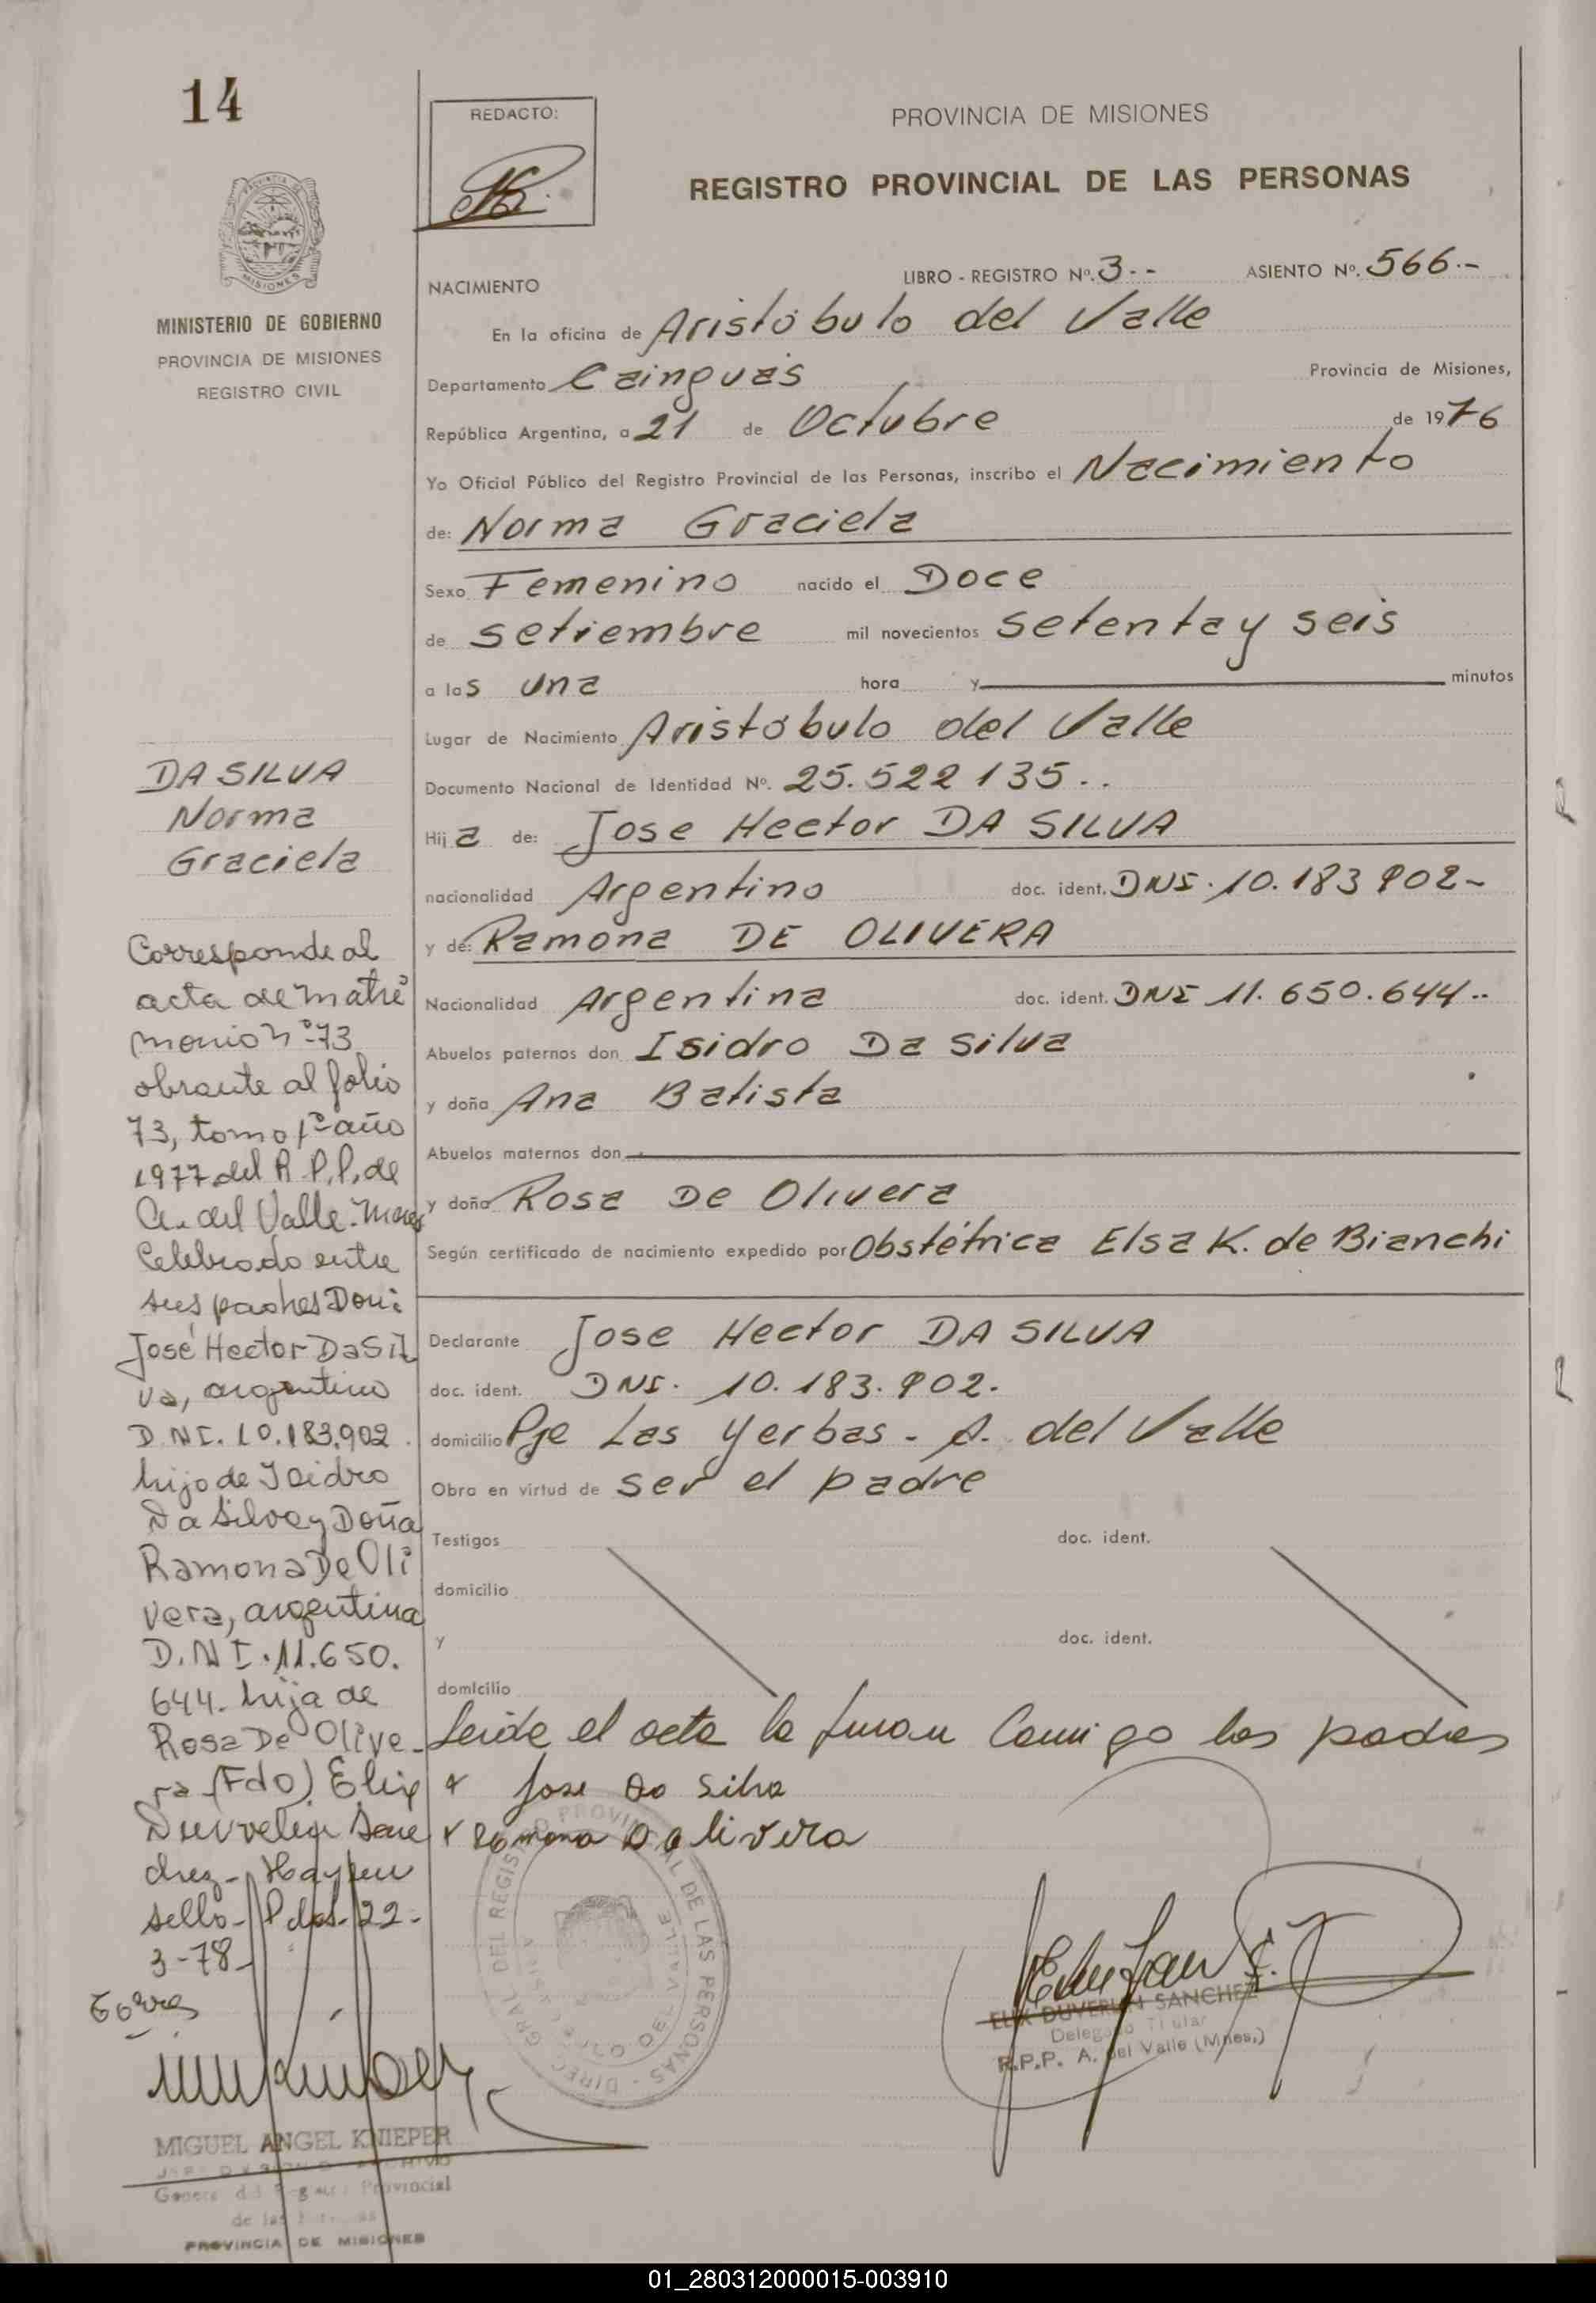 14
REDACTO:
PROVINCIA DE MISIONES
REGISTRO PROVINCIAL DE LAS PERSONAS
MINISTERIO DE GOBIERNO
PROVINCIA DE MISIONES
REGISTRO CIVIL
NACIMIENTO LIBRO - REGISTRO Nº. 3.-- ASIENTO Nº. 566.-
En la oficina de Aristóbulo del Valle
Departamento Cainguás Provincia de Misiones,
República Argentina, a 21 de Octubre de 1976
Yo Oficial Público del Registro Provincial de las Personas, inscribo el Nacimiento
de: Norma Graciela
Sexo Femenino nacido el Doce
de setiembre mil novecientos setenta y seis
a las una hora y minutos
Lugar de Nacimiento Aristóbulo del Valle
Documento Nacional de Identidad Nº. 25.522 135..
Hija de: Jose Hector DA SILVA
nacionalidad Argentino doc. ident. DNI. 10.183 902-
y de: Ramona DE OLIVERA
Nacionalidad Argentina doc. ident. DNI 11.650.644..
Abuelos paternos don Isidro Da Silva
y doña Ana Batista
Abuelos maternos don
y doña Rosa De Olivera
Según certificado de nacimiento expedido por Obstétrica Elsa K. de Bianchi
Declarante Jose Hector DA SILVA
doc. ident. DNI. 10.183.902.
domicilio Pje Las Yerbas - A. del Valle
Obra en virtud de ser el padre
Testigos doc. ident.
domicilio
y doc. ident.
domicilio
Leida el acta la firman conmigo los padres
Jose Da Silva
Ramona D Olivera
DA SILVA
Norma
Graciela
Corresponde al
acta de matri
monio nº 73
obrante al folio
73, tomo 1º año
1977 del R.P.P. de
A. del Valle. Mnes
Celebrado entre
sus padres Don:
José Hector Da Sil
va, argentino
D.N.I. 10.183.902.
hijo de Isidro
Da Silva y Doña
Ramona De Oli
vera, argentina
D.N.I. 11.650.
644. hija de
Rosa De Olive-
ra (Fdo). Elix
Duvvelin San
chez - Hay un
sello - Pdas. 22-
3-78-
MIGUEL ANGEL KNIEPER
PROVINCIA DE MISIONES
DIREC. GRAL. DEL REGISTRO PROVINCIAL DE LAS PERSONAS
ELIX DUVERLIN SANCHEZ
Delegado Titular
R.P.P. A. del Valle (Mnes.)
01_280312000015-003910